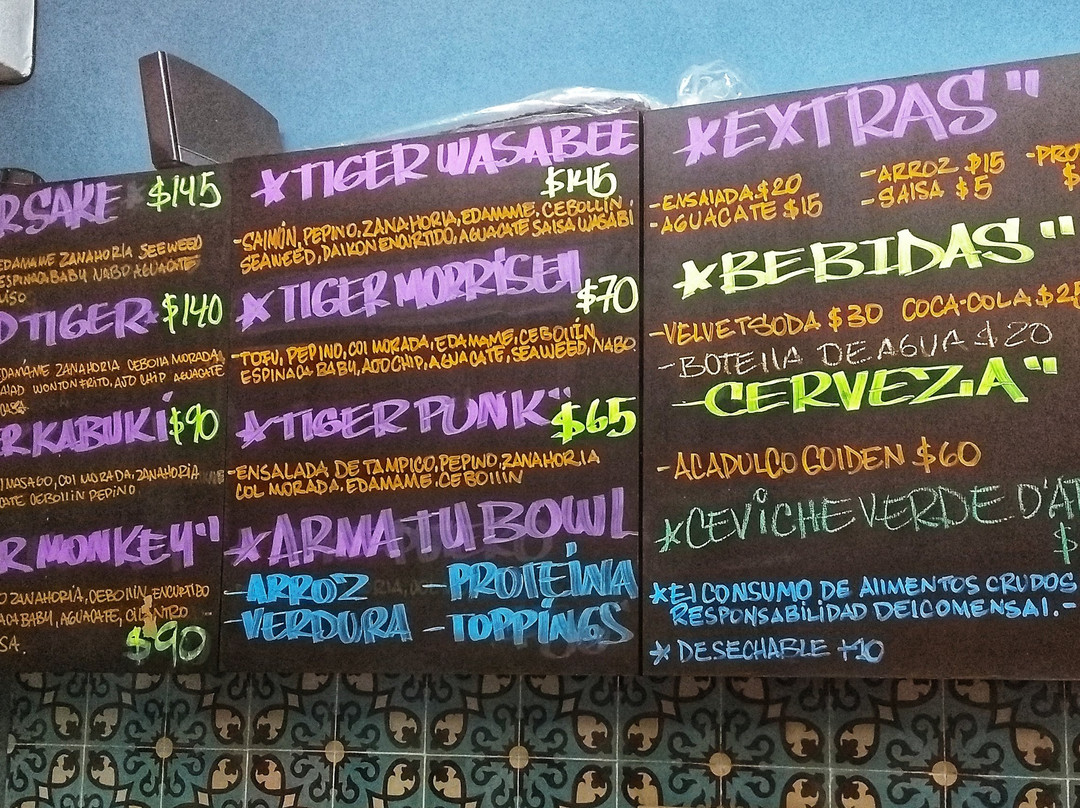 R SAKE $145
EDAMAME ZANAHORIA SEEWEED
ESPINACA BABY NABO AGUACATE
D TIGER $140
EDAMAME ZANAHORIA CEBOLLA MORADA
WONTON FRITO, AJO CHIP AGUACATE
R KABUKI $90
MASAGO, COL MORADA, ZANAHORIA
CEBOLLIN PEPINO
R MONKEY"
ZANAHORIA, CEBOLLIN, ENCURTIDO
BABY, AGUACATE, CILANTRO
SA.
$90
*TIGER WASABEE
$145
-SALMÓN, PEPINO, ZANAHORIA, EDAMAME, CEBOLLIN
SEAWEED, DAIKON ENCURTIDO, AGUACATE SALSA WASABI
*TIGER MORRISEY
$70
-TOFU, PEPINO, COL MORADA, EDAMAME, CEBOLLÍN
ESPINACA BABY, AJO CHIP, AGUACATE, SEAWEED, NABO
*TIGER PUNK" $65
-ENSALADA DE TAMPICO, PEPINO, ZANAHORIA
COL MORADA, EDAMAME, CEBOLLIN
*ARMA TU BOWL
-ARROZ -PROTEÍNA
-VERDURA -TOPPINGS
*EXTRAS"
-ENSALADA $20 -ARROZ $15 -PRO
-AGUACATE $15 -SALSA $5 $
*BEBIDAS"
-VELVET SODA $30 COCA-COLA $25
-BOTELLA DE AGUA $20
-CERVEZA"
-ACAPULCO GOLDEN $60
*CEVICHE VERDE D'AT
$
*El CONSUMO DE AlIMENTOS CRUDOS
RESPONSABILIDAD DEl COMENSAl.-
* DESECHABLE +10